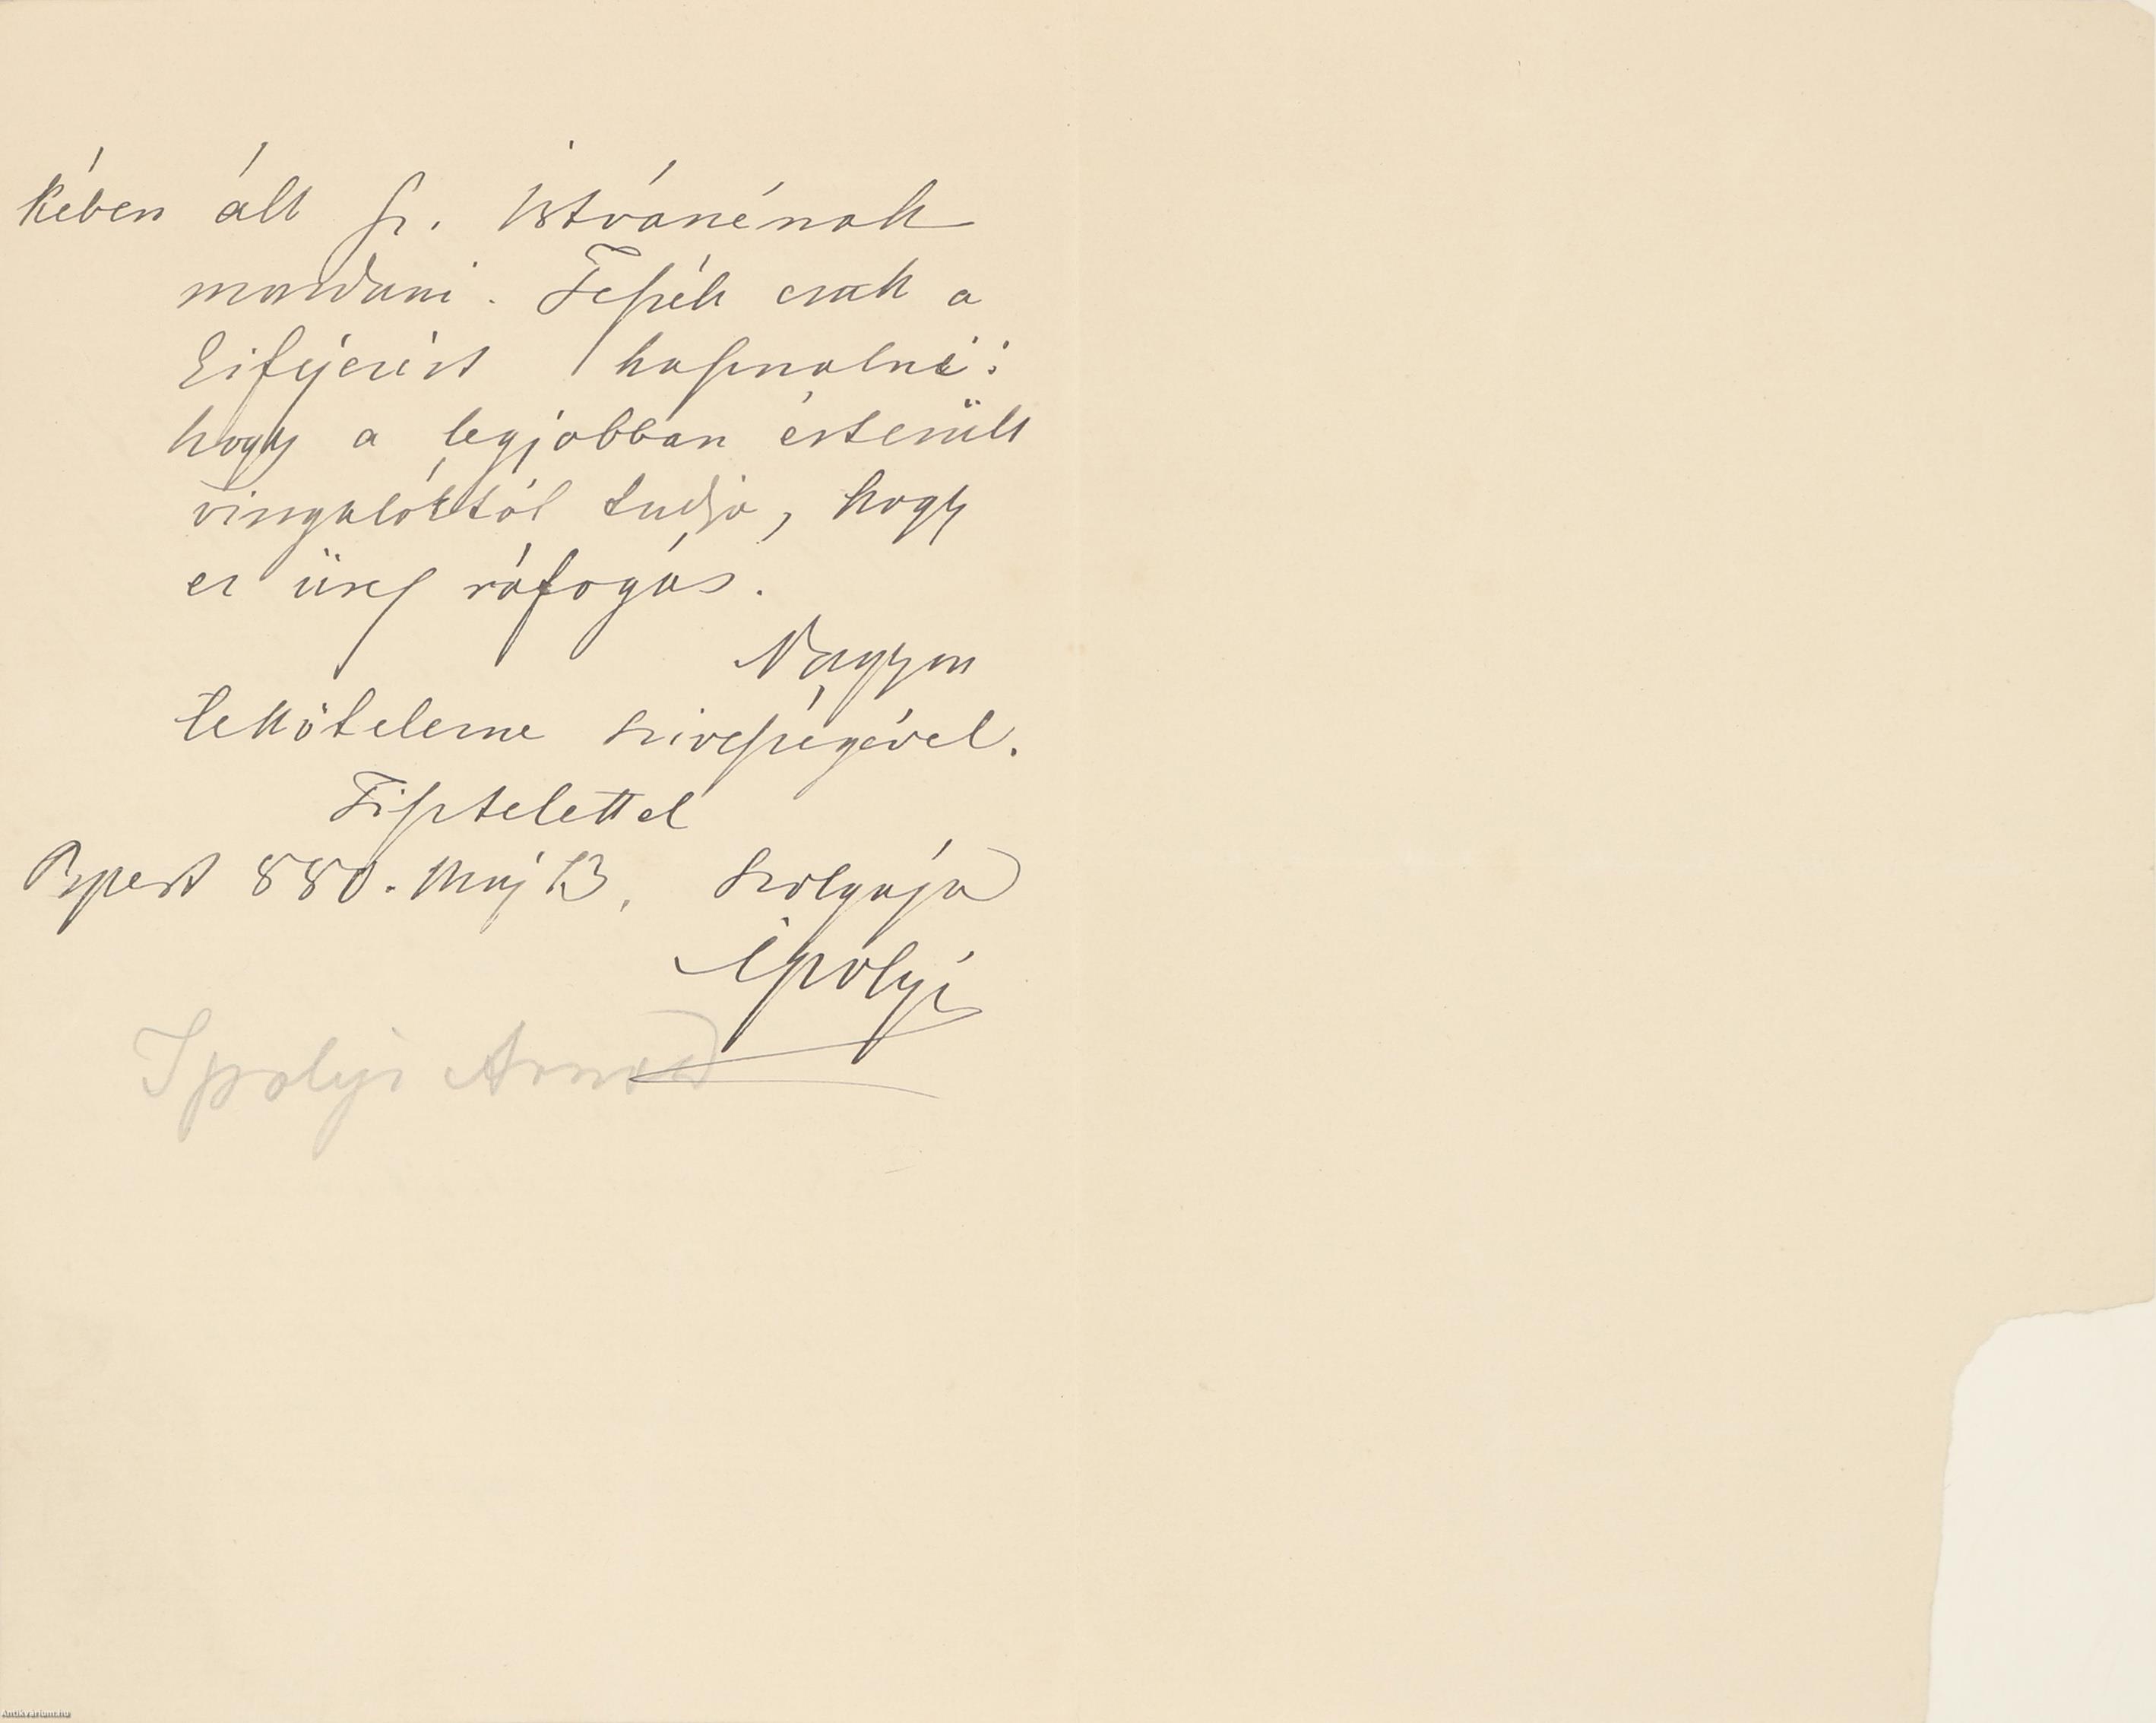 kében ált Sz. Istvánénak
mondani. Tessék csak a
kifejezést használni:
hogy a legjobban értesült
vizsgálóktól tudja, hogy
ez üres ráfogás.
Nagyon
lekötelezne szivességével.
Tisztelettel
Bpest 880. Máj 13. Szolgája
Ipolyi
Ipolyi Arnold
Antikvarium.hu